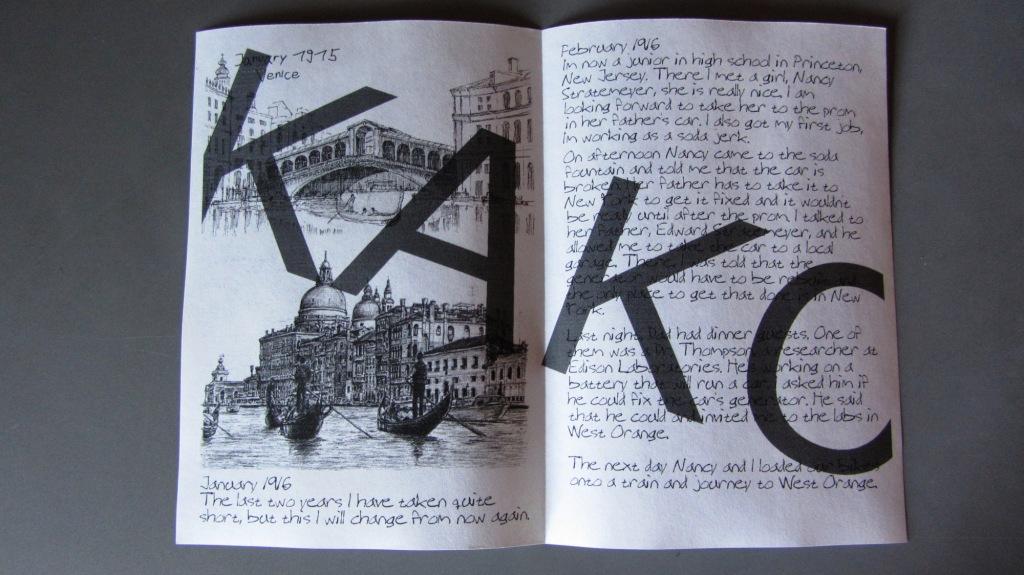 January 1915
Venice
KA
January 1916
The last two years I have taken quite
short, but this I will change from now again.
February 1916
Im now a junior in high school in Princeton,
New Jersey. There I met a girl, Nancy
Stratemeyer, she is really nice. I am
looking forward to take her to the prom
in her father's car. I also got my first job,
Im working as a soda jerk.
On afternoon Nancy came to the soda
fountain and told me that the car is
broken. Her father has to take it to
New York to get it fixed and it wouldn't
be ready until after the prom. I talked to
her father, Edward Stratemeyer, and he
allowed me to take the car to a local
garage. There, I was told that the
generator would have to be
the only place to get that done is in New
York.
Last night, Dad had dinner guests. One of
them was a Mr. Thompson, a researcher at
Edison Laboratories. He's working on a
battery that will run a car. I asked him if
he could fix the car's generator. He said
that he could and invited me to the labs in
West Orange.
The next day Nancy and I loaded our bikes
onto a train and journey to West Orange.
KC